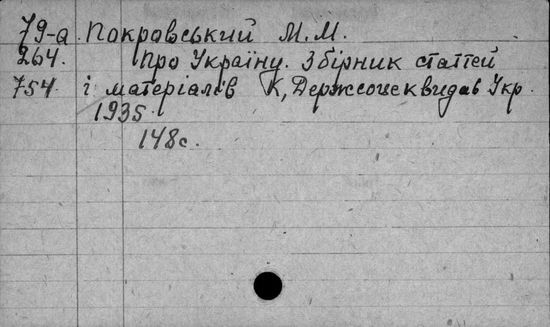 79-а Покровський М.М.
264. Про Україну. Збірник статтей
754. і матеріалів К, Держсоцеквидав Укр.
1935
148с.